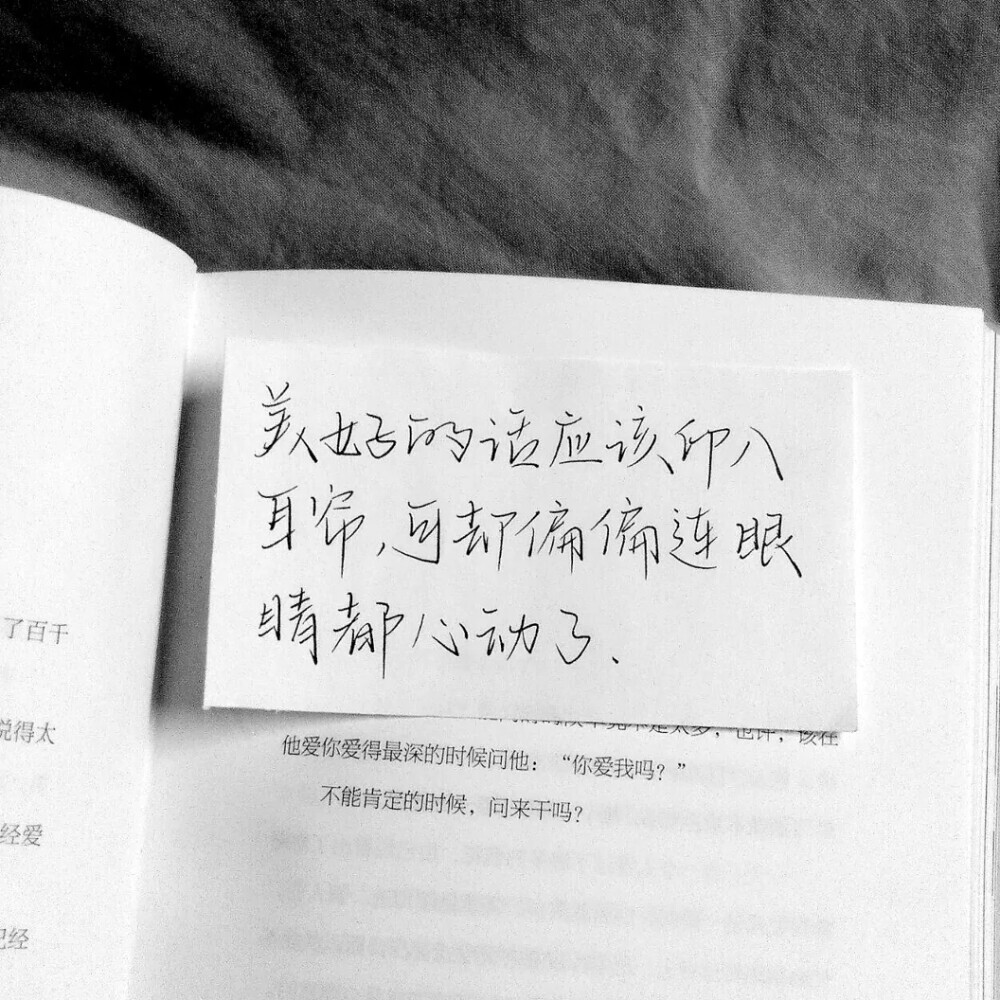 了百千
说得太
经爱
经
美好的话应该印入
耳帘,可却偏偏连眼
睛都心动了.
太多，也许，该在
他爱你爱得最深的时候问他：“你爱我吗？”
不能肯定的时候，问来干吗？